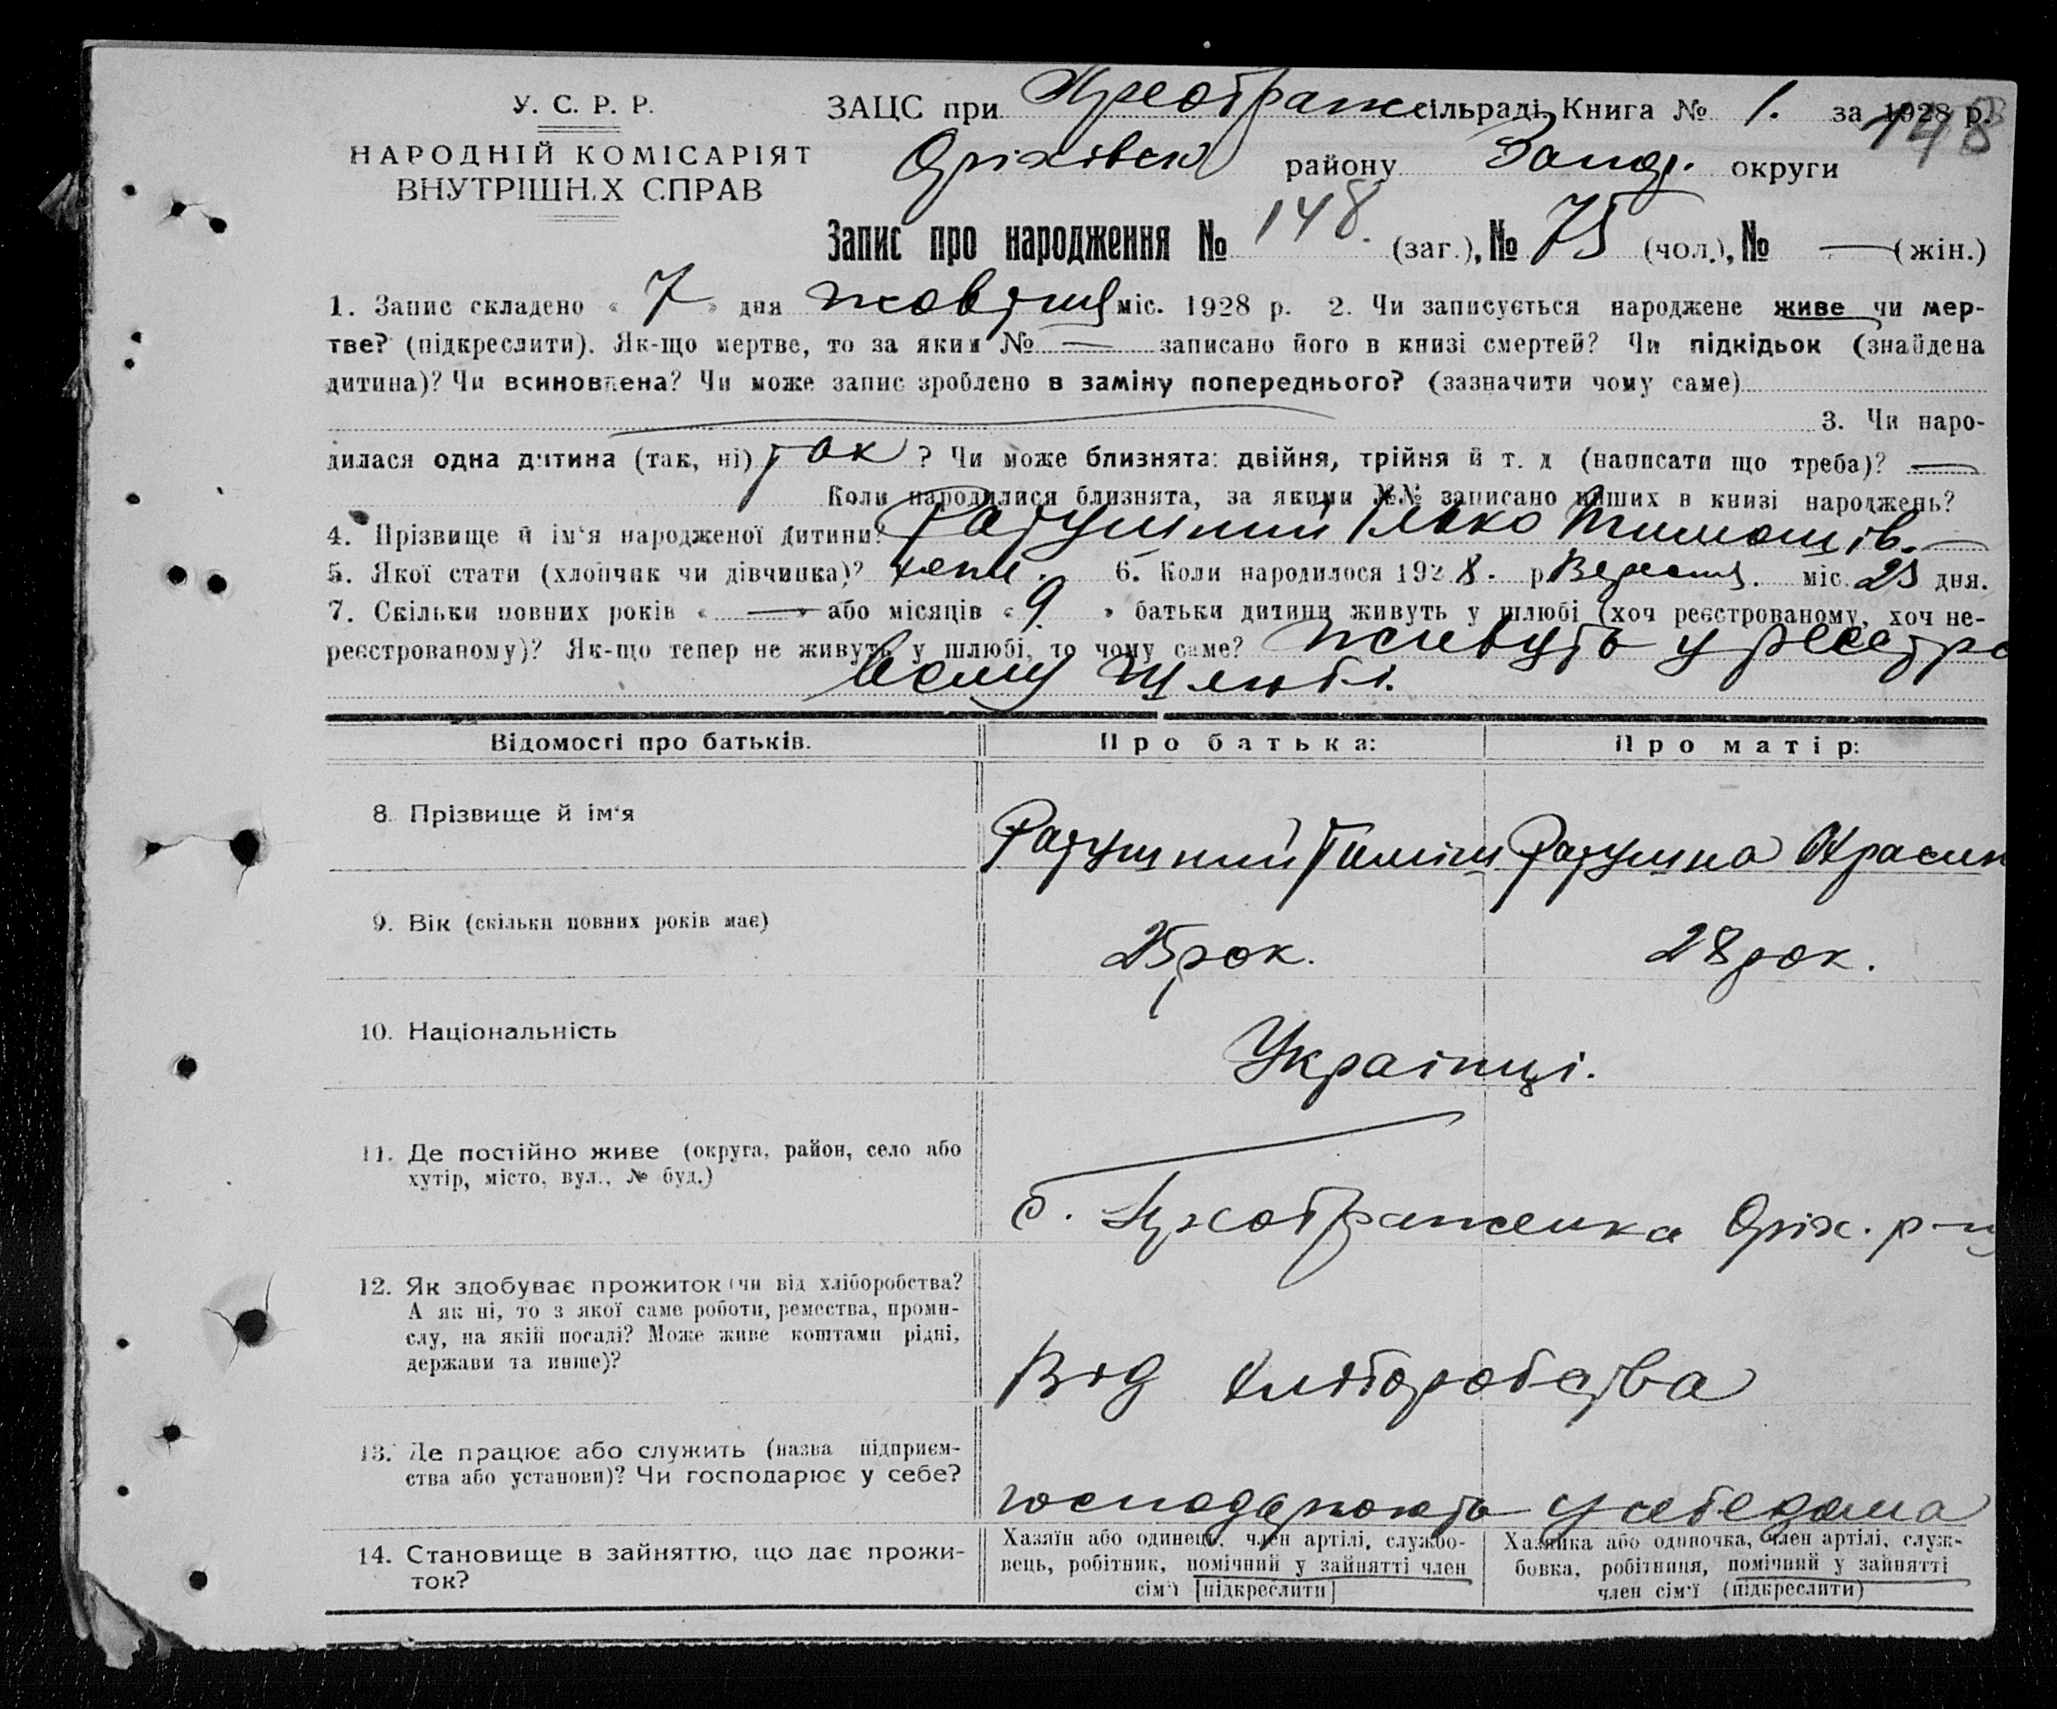 У. С. Р. Р.
НАРОДНІЙ КОМІСАРІЯТ
ВНУТРІШН.Х СПРАВ
ЗАЦС при Преображ сільраді Книга № 1. за 1928 р.
148
Оріхівськ району Запор. округи
Запис про народження № 148. (заг.), № 75 (чол.), № — (жін.)
1. Запис складено « 7 » дня жовтня міс. 1928 р. 2. Чи записується народжене живе чи мер-
тве? (підкреслити). Як-що мертве, то за яким № — записано його в книзі смертей? Чи підкідьок (знайдена
дитина)? Чи всиновлена? Чи може запис зроблено в заміну попереднього? (зазначити чому саме)
3. Чи наро-
дилася одна дитина (так, ні) так ? Чи може близнята: двійня, трійня й т. д (написати що треба)? —
Коли народилися близнята, за якими №№ записано инших в книзі народжень?
4. Прізвище й ім'я народженої дитини? Ратушний Ілько Тимошів. —
5. Якої стати (хлопчик чи дівчинка)? хлопч. 6. Коли народилося 1928. р Вересня. міс. 25 дня.
7. Скільки повних років « — » або місяців « 9 » батьки дитини живуть у шлюбі (хоч реєстрованому, хоч не-
реєстрованому)? Як-що тепер не живуть у шлюбі, то чому саме? живуть у реєстро
ваному шлюбі.
Відомості про батьків.
Про батька:
Про матір:
8. Прізвище й ім'я
Ратушний Тиміш
Ратушна
9. Вік (скільки повних років має)
25 рок.
28 рок.
10. Національність
Українці.
11. Де постійно живе (округа, район, село або
хутір, місто, вул., № буд.)
с. Преображенка Оріх. р-ну
12. Як здобуває прожиток (чи від хліборобства?
А як ні, то з якої саме роботи, ремества, проми-
слу, на якій посаді? Може живе коштами рідні,
держави та инше)?
Від хліборобства
13. Де працює або служить (назва підприєм-
ства або установи)? Чи господарює у себе?
господарюють у себе дома
14. Становище в зайняттю, що дає прожи-
ток?
Хазяїн або одинець, член артілі, службо-
вець, робітник, помічний у зайнятті член
сім'ї [підкреслити]
Хазяйка або одиночка, член артілі, служ-
бовка, робітниця, помічний у зайнятті
член сім'ї (підкреслити)